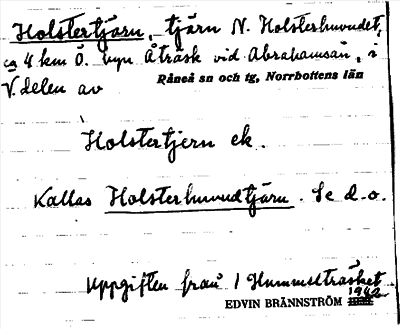 Holstertjärn, tjärn N. Holsterhuvudet,
ca 4 km Ö. byn Åträsk vid Abrahamsån, i
V. delen av Råneå sn och tg, Norrbottens län
Holstertjern ek.
Kallas Holsterhuvudtjärn. Se d.o.
Uppgiften från I Hummelträsket.
EDVIN BRÄNNSTRÖM 1942